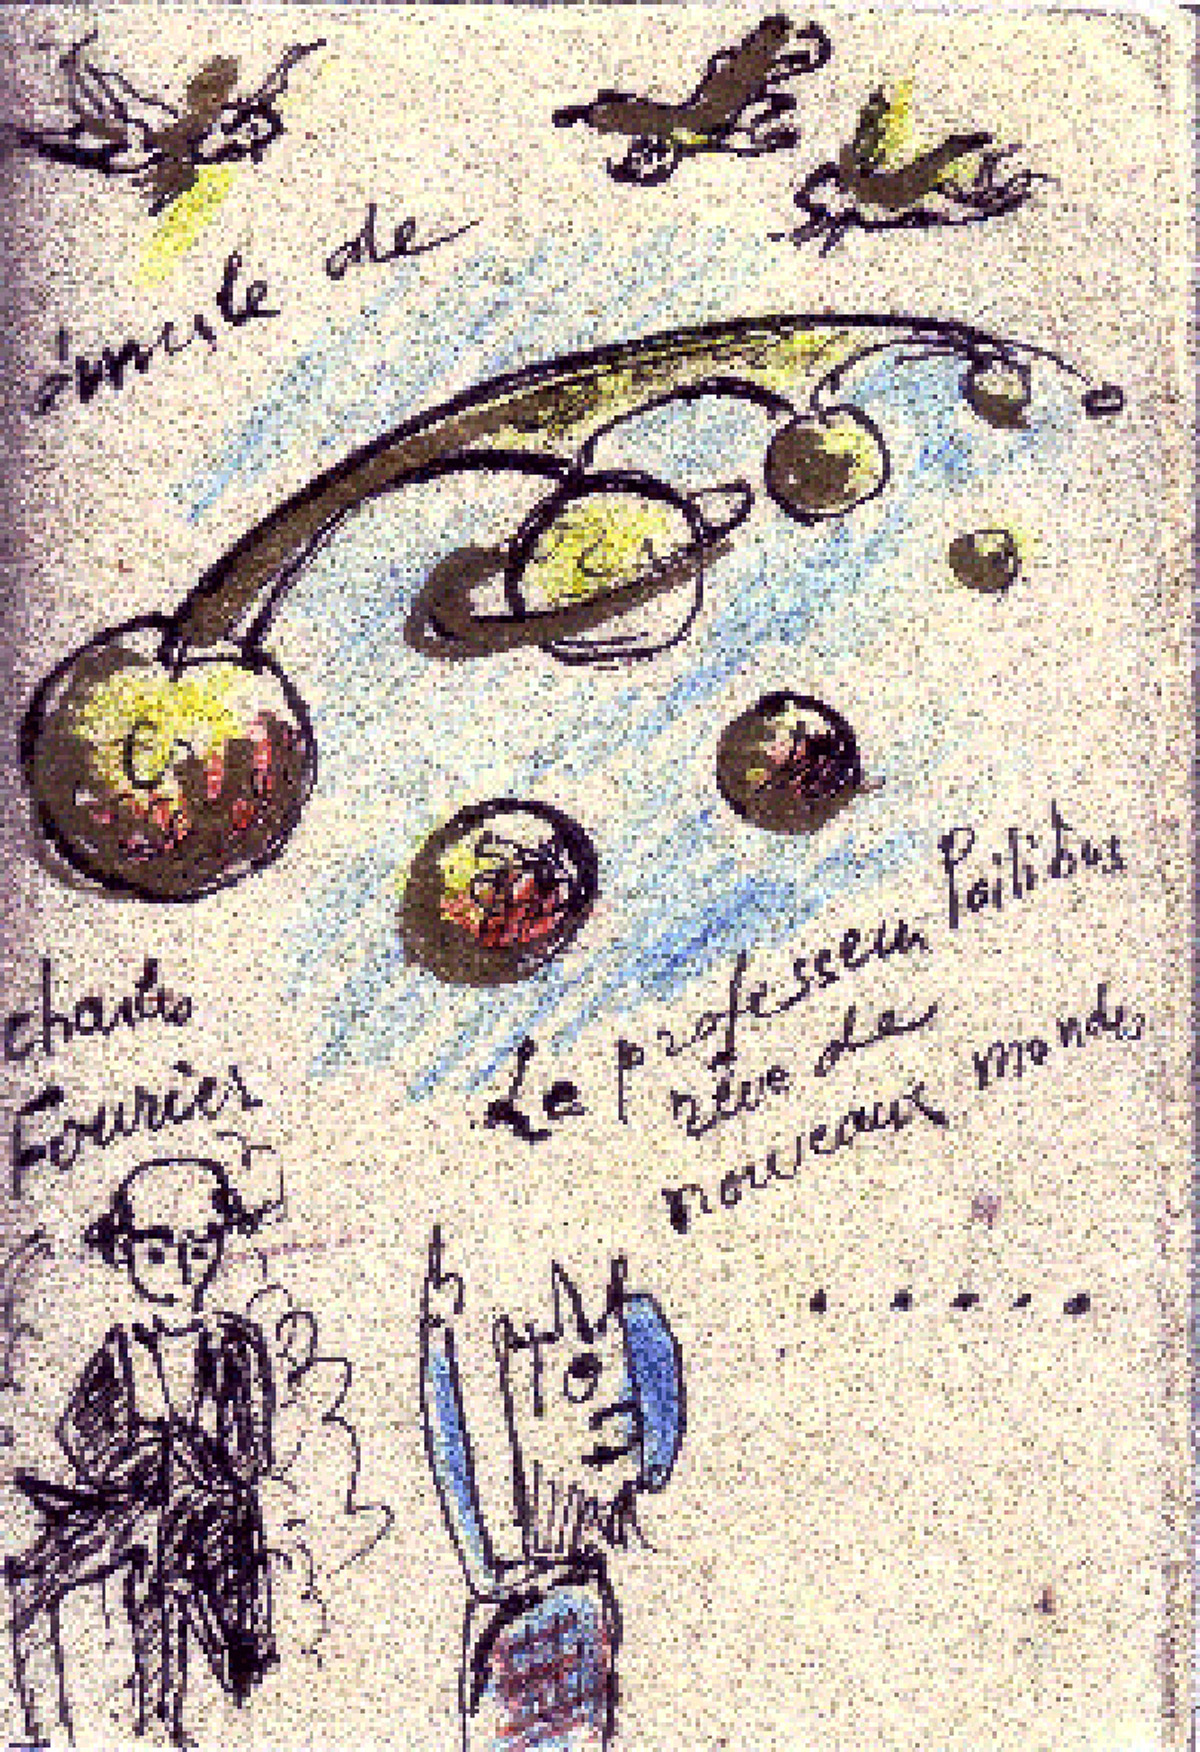 émule de
charles
Fourier
Le professeur Poilibus
rêve de
nouveaux mondes
.....